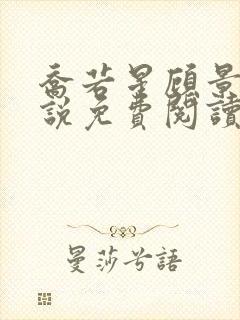 喬若星顧景
說免費閱讀
曼莎兮語